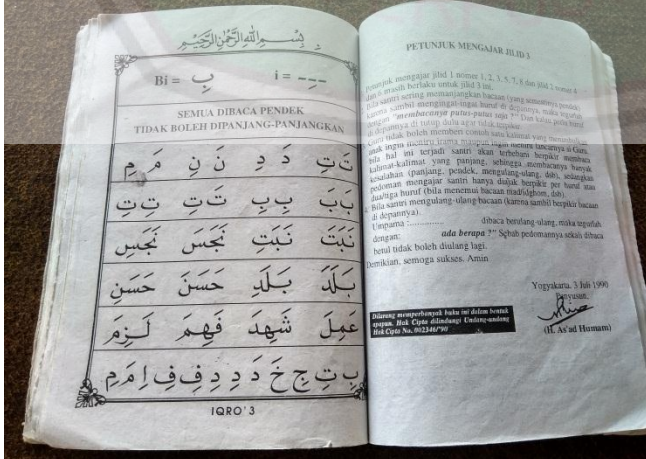 بِسْمِ اللهِ الرَّحْمٰنِ الرَّحِيْمِ
Bi = بِ    i = ---
SEMUA DIBACA PENDEK
TIDAK BOLEH DIPANJANG-PANJANGKAN
تَ تِ دَ دِ نَ نِ مَ مِ
بَ بَ بِ بِ تَ تِ تِ تِ
نَبَتَ نَبَتِ نَجَسَ نَجَسِ
بَلَدَ بَلَدِ حَسَنَ حَسَنِ
عَمِلَ شَهِدَ فَهِمَ لَزِمَ
بِ تِ جِ خَ دَ دِ دِ فِ فِ اِ مَ مِ
IQRO' 3
PETUNJUK MENGAJAR JILID 3
Petunjuk mengajar jilid 1 nomer 1, 2, 3, 5, 7, 8 dan jilid 2 nomer 4
dan 6 masih berlaku untuk jilid 3 ini.
Bila santri sering memanjangkan bacaan (yang semestinya pendek)
karena sambil mengingat-ingat huruf di depannya, maka tegurlah
dengan "membacanya putus-putus saja !" Dan kalau perlu huruf
di depannya di tutup dulu agar tidak
Guru tidak boleh memberi contoh satu kalimat yang
anak ingin meniru irama maupun ingin meniru lancarnya si Guru.
bila hal ini terjadi santri akan terbebani berpikir membaca
kalimat-kalimat yang panjang, sehingga membacanya banyak
kesalahan (panjang, pendek, mengulang-ulang, dab), sedangkan
pedoman mengajar santri hanya diajak berpikir per huruf atau
dua/tiga huruf (bila menemui bacaan mad/idghom, dab).
Bila santri mengulang-ulang bacaan (karena sambil berpikir bacaan
di depannya).
Umpama :.............. dibaca berulang-ulang, maka tegurlah
dengan: ada berapa ?" Sebab pedomannya sekali dibaca
betul tidak boleh diulang lagi.
Demikian, semoga sukses. Amin
Yogyakarta, 3 Juli 1990
Penyusun,
(H. As'ad Humam)
Dilarang memperbanyak buku ini dalam bentuk
apapun. Hak Cipta dilindungi Undang-undang
Hak Cipta No. 002346/'90